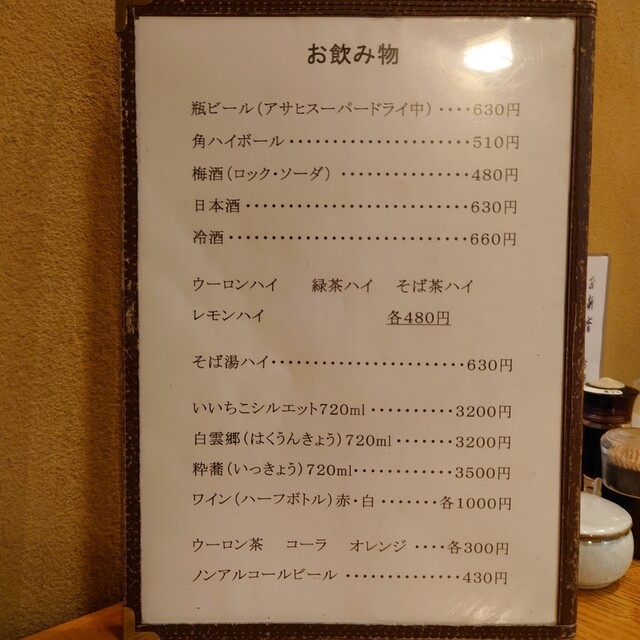 お飲み物
瓶ビール(アサヒスーパードライ中)････630円
角ハイボール･･････････････････････510円
梅酒(ロック・ソーダ) ･･･････････････480円
日本酒･･･････････････････････････630円
冷酒････････････････････････････660円
ウーロンハイ 緑茶ハイ そば茶ハイ
レモンハイ 各480円
そば湯ハイ･･････････････････････････630円
いいちこシルエット720ml ･･････････3200円
白雲郷(はくうんきょう)720ml･･･････3200円
粋蕎(いっきょう)720ml････････････3500円
ワイン(ハーフボトル)赤・白 ･･･････各1000円
ウーロン茶 コーラ オレンジ ････各300円
ノンアルコールビール ･･････････････430円